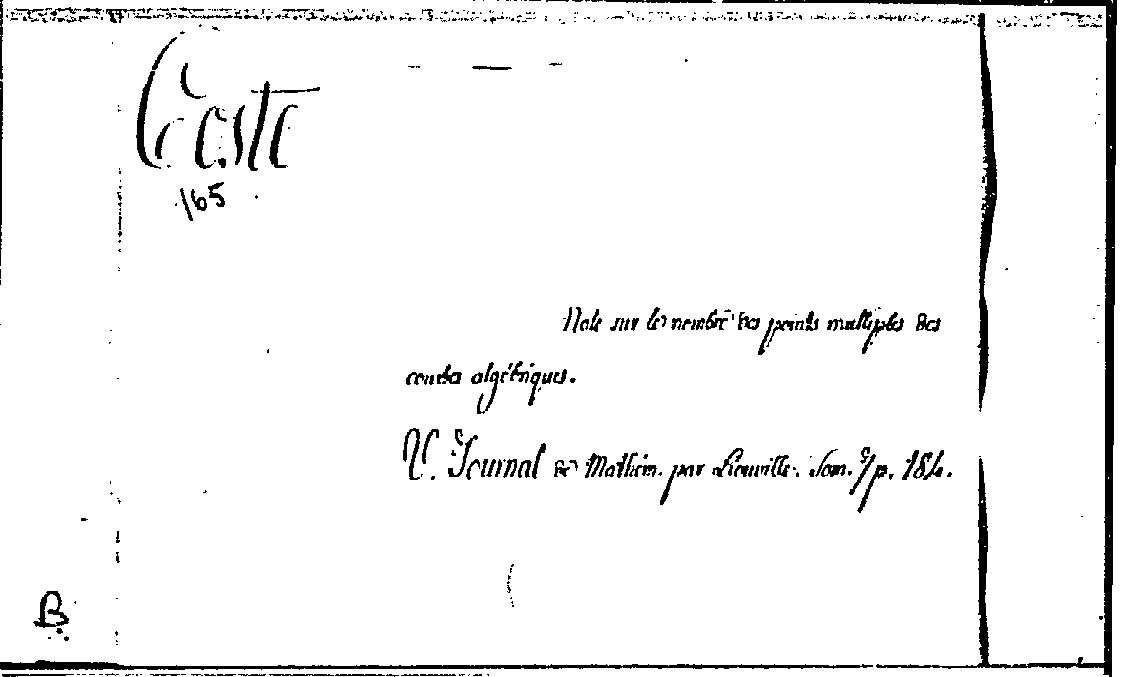 Coste
165
Note sur le nombre des points multiples des
courbes algébriques.
V. Journal de Mathém. par Liouville. Tom. 7 p. 184.
B